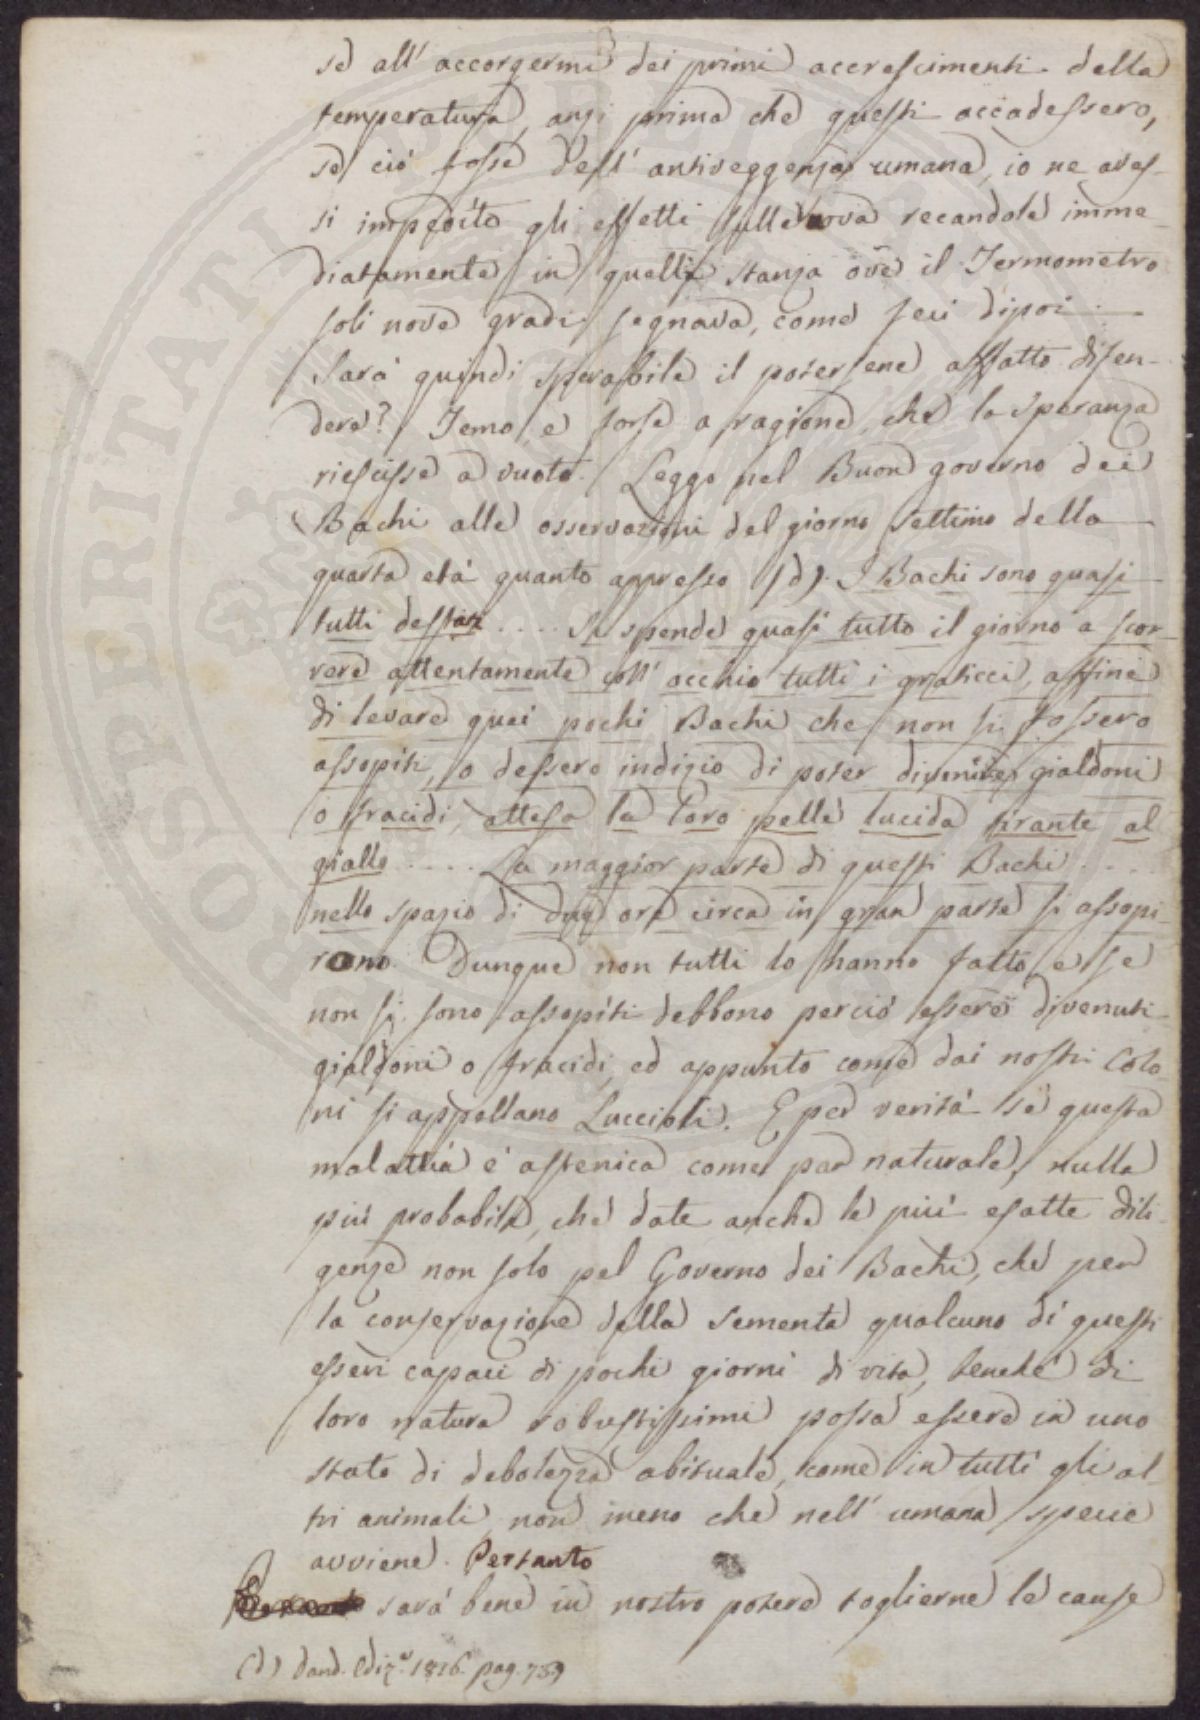 se all' accorgermi dei primi accrescimenti della
temperatura, anzi prima che questi accadessero,
se ciò fosse dell' antiveggenza umana, io ne aves-
si impedito gli effetti sulle uova recandole imme
diatamente in quella stanza ove il Termometro
soli nove gradi segnava, come feci dipoi
Sarà quindi sperabile il potersene affatto difen-
dere? Temo, e forse a ragione, che la speranza
riescisse a vuoto. Leggo nel Buon governo dei
Bachi alle osservazioni del giorno settimo della
quarta età quanto appresso (d). I Bachi sono quasi
tutti desti .... Si spende quasi tutto il giorno a scor-
rere attentamente coll' occhio tutti i graticci, affine
di levare quei pochi Bachi che non si fossero
assopiti, o dessero indizio di poter divenire gialdoni
o fracidi, attesa la loro pelle lucida tirante al
giallo .... La maggior parte di questi Bachi ....
nello spazio di due ore circa in gran parte si assopi-
rono. Dunque non tutti lo hanno fatto, e se
non si sono assopiti debbono perciò essere divenuti
gialdoni o fracidi, ed appunto come dai nostri Colo-
ni si appellano Luccioli. E per verità se questa
malattia è astenica come par naturale, nulla
più probabile, che date anche le più esatte dili-
genze non solo pel Governo dei Bachi, che per
la conservazione della sementa qualcuno di questi
esseri capaci di pochi giorni di vita, benché di
loro natura robustissimi possa essere in uno
stato di debolezza abituale, come in tutti gli al
tri animali, non meno che nell' umana specie
avviene. Pertanto
sarà bene in nostro potere toglierne le cause
(d) Dand. Ediz.e 1816. pag. 739